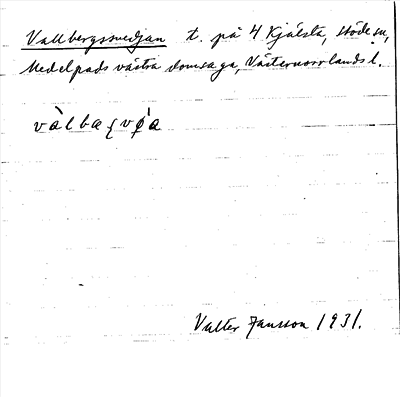 Vallbergsvedjan t. på 4 Kjälsta, Stöde sn,
Medelpads västra domsaga, Västernorrlands l.
Valter Jansson 1931.